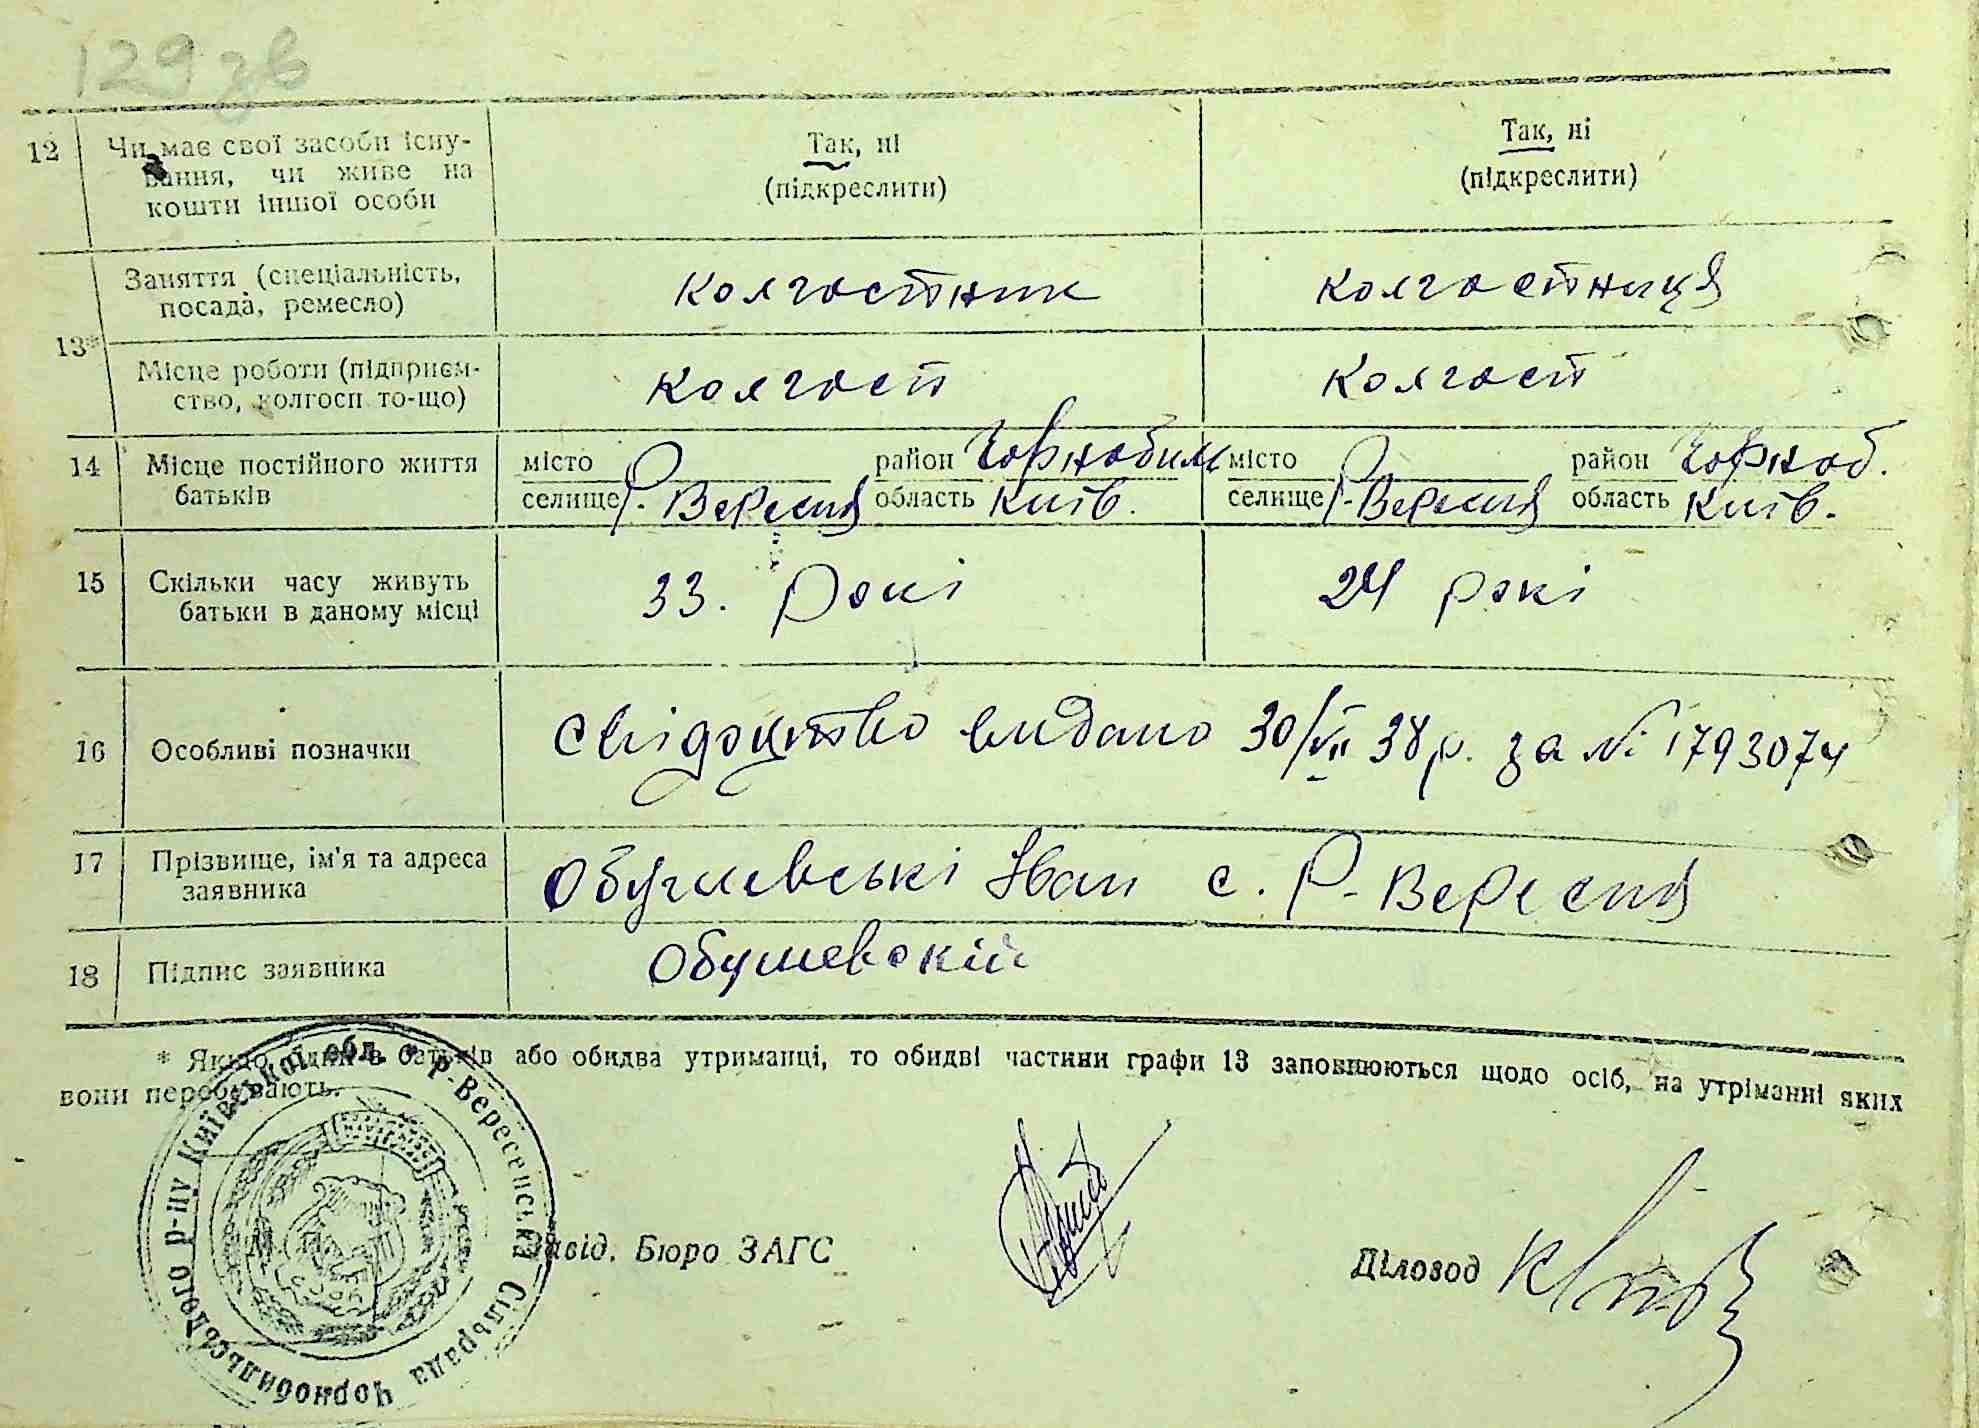 129 зв
12 Чи має свої засоби існу- Так, ні Так, ні
вання, чи живе на (підкреслити) (підкреслити)
кошти іншої особи
Заняття (спеціальність, колгостник колгостниця
посада, ремесло)
13*
Місце роботи (підприєм- колгост колгост
ство, колгосп то-що)
14 Місце постійного життя місто район Чорнобил місто район Чорноб.
батьків селище Р. Вересня область Київ. селище Р-Вересня область Київ.
15 Скільки часу живуть 33. рокі 24 рокі
батьки в даному місці
16 Особливі позначки свідоцтво видано 30/VII 38 р. за № 1793074
17 Прізвище, ім'я та адреса Обушевські Іван с. Р-Вересня
заявника
18 Підпис заявника Обушевскій
* Якщо один з батьків або обидва утриманці, то обидві частини графи 13 заповнюються щодо осіб, на утріманні яких
вони перебувають.
Р-Вересенська Сільрада Чорнобильського р-ну Київської обл. *
Завід. Бюро ЗАГС Діловод